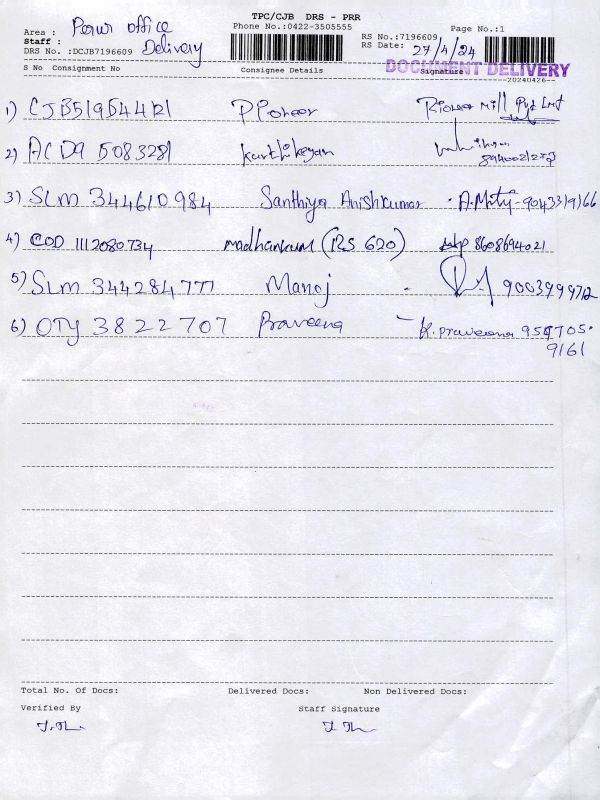 TPC/CJB DRS - PRR
Phone No.:0422-3505555
Area : Perur office
Staff : Delivery
DRS No. :DCJB7196609
RS No.:7196609
RS Date: 27/4/24
Page No.:1
DOCUMENT DELIVERY
--20240426--
S No Consignment No Consignee Details Signature
1) CJB519544121 Pioneer Pioneer Mill Pvt Lmt
2) ACD9 5083281 Karthikeyan
3) SLM 344610984 Santhiya Anishkumar A. 9043319166
4) COD 1112080734 madhankum (RS 620) 8608694021
5) SLM 344284777 Manoj - 9003999712
6) OTY 3822707 Praveena - K. praveena 959705
9161
Total No. Of Docs: Delivered Docs: Non Delivered Docs:
Verified By Staff Signature